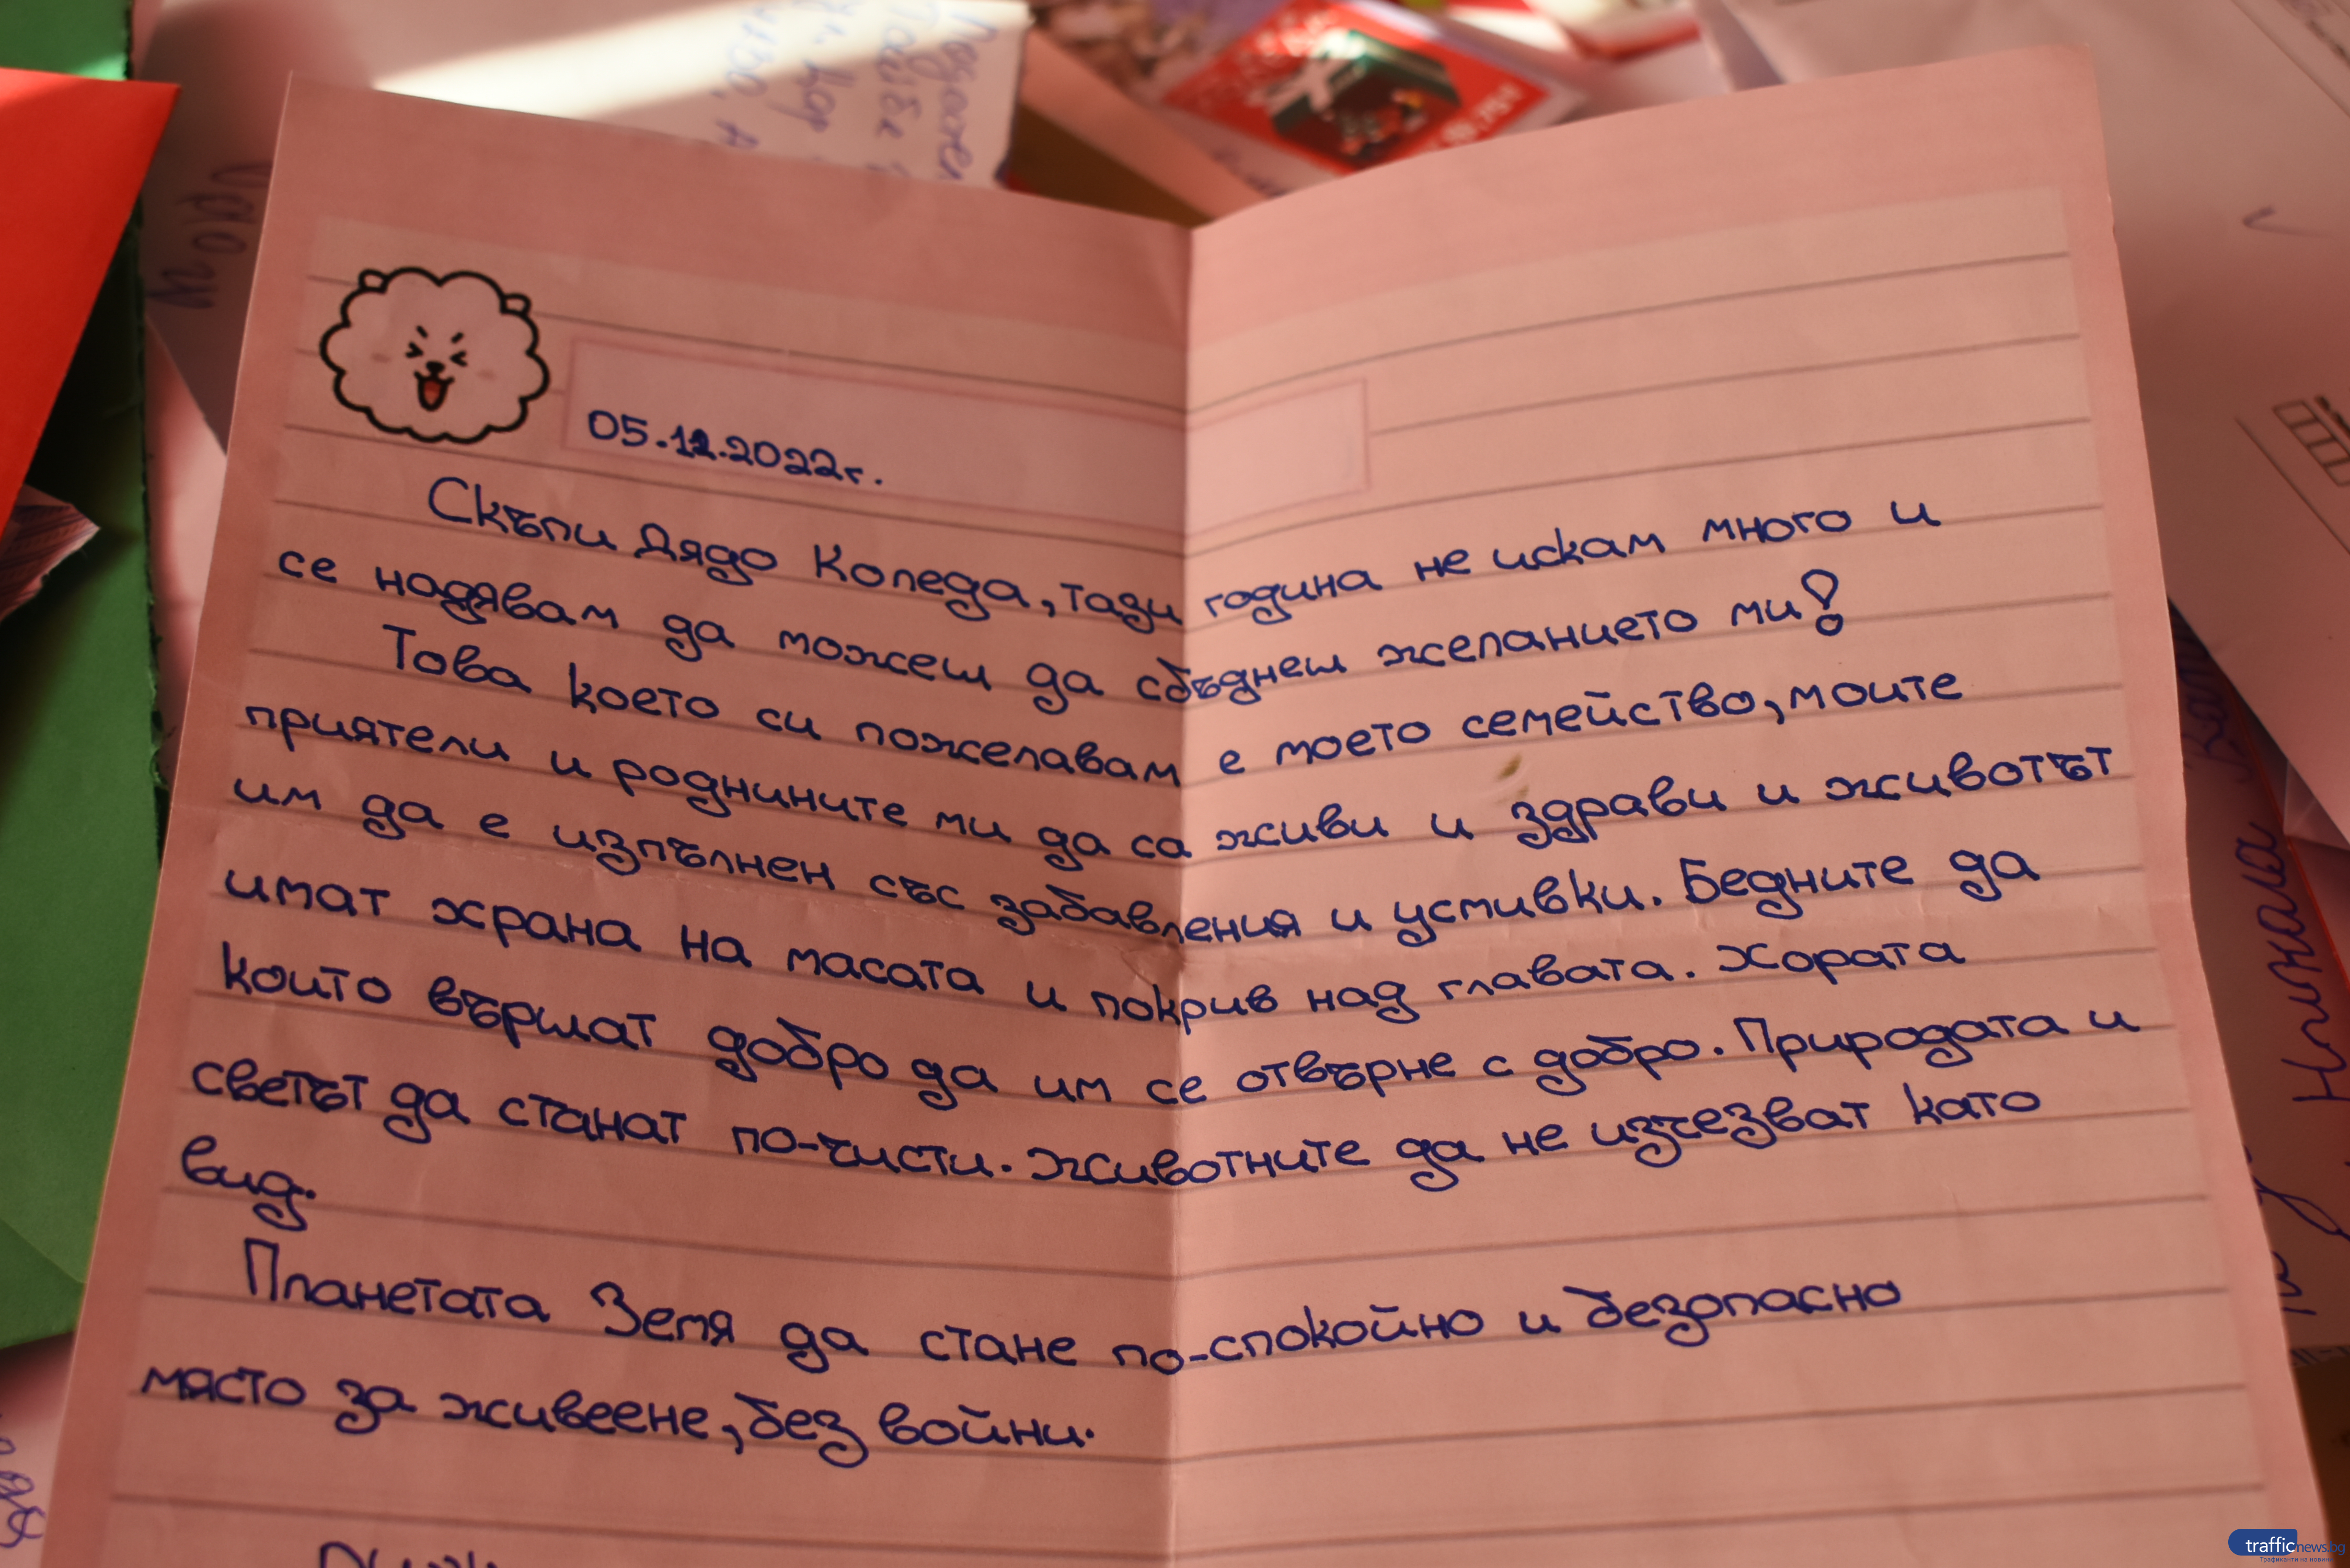 05.12.2022г.
Скъпи Дядо Коледа, тази година не искам много и
се надявам да можеш да сбъднеш желанието ми!
Това което си пожелавам е моето семейство, моите
приятели и роднините ми да са живи и здрави и животът
им да е изпълнен със забавления и усмивки. Бедните да
имат храна на масата и покрив над главата. Хората
които вършат добро да им се отвърне с добро. Природата и
светът да станат по-чисти. Животните да не изчезват като
вид.
Планетата Земя да стане по-спокойно и безопасно
място за живеене, без войни.
trafficnews.bg